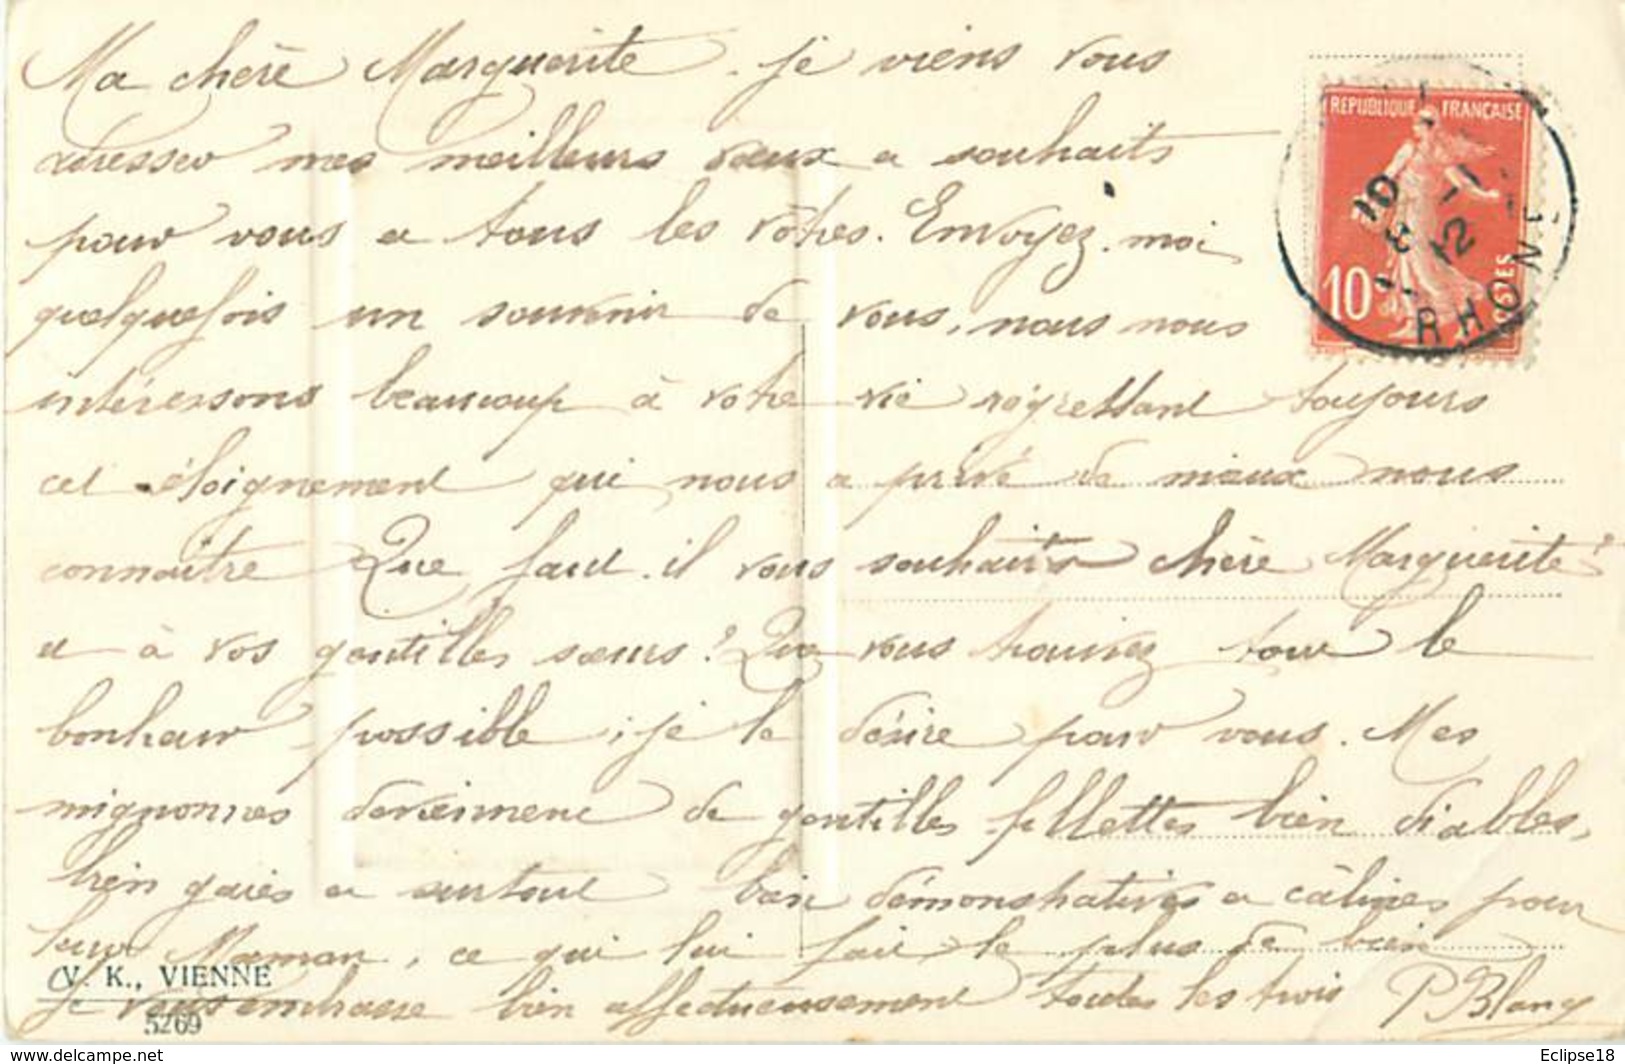 Ma chère Marguerite. je viens vous
adresser mes meilleurs vœux et souhaits
pour vous et tous les vôtres. Envoyez-moi
quelquefois un souvenir de vous, nous nous
intéressons beaucoup à votre vie régrettant toujours
cet éloignement qui nous a privé de mieux nous
connaitre Que faut-il vous souhaiter chère Marguerite?
et à vos gentilles sœurs? Que vous trouviez tout le
bonheur possible, je le désire pour vous. Mes
mignonnes deviennent de gentilles fillettes bien diables,
bien gaies et surtout bien démonstratives et câlines pour
leur Maman, ce qui lui fait le plus de bien
Je vous embrasse bien affectueusement toutes les trois P Blanc
V. K., VIENNE
5269
REPUBLIQUE FRANÇAISE
10c
POSTES
10
8 -1
12
RHONE
Eclipse18
www.delcampe.net